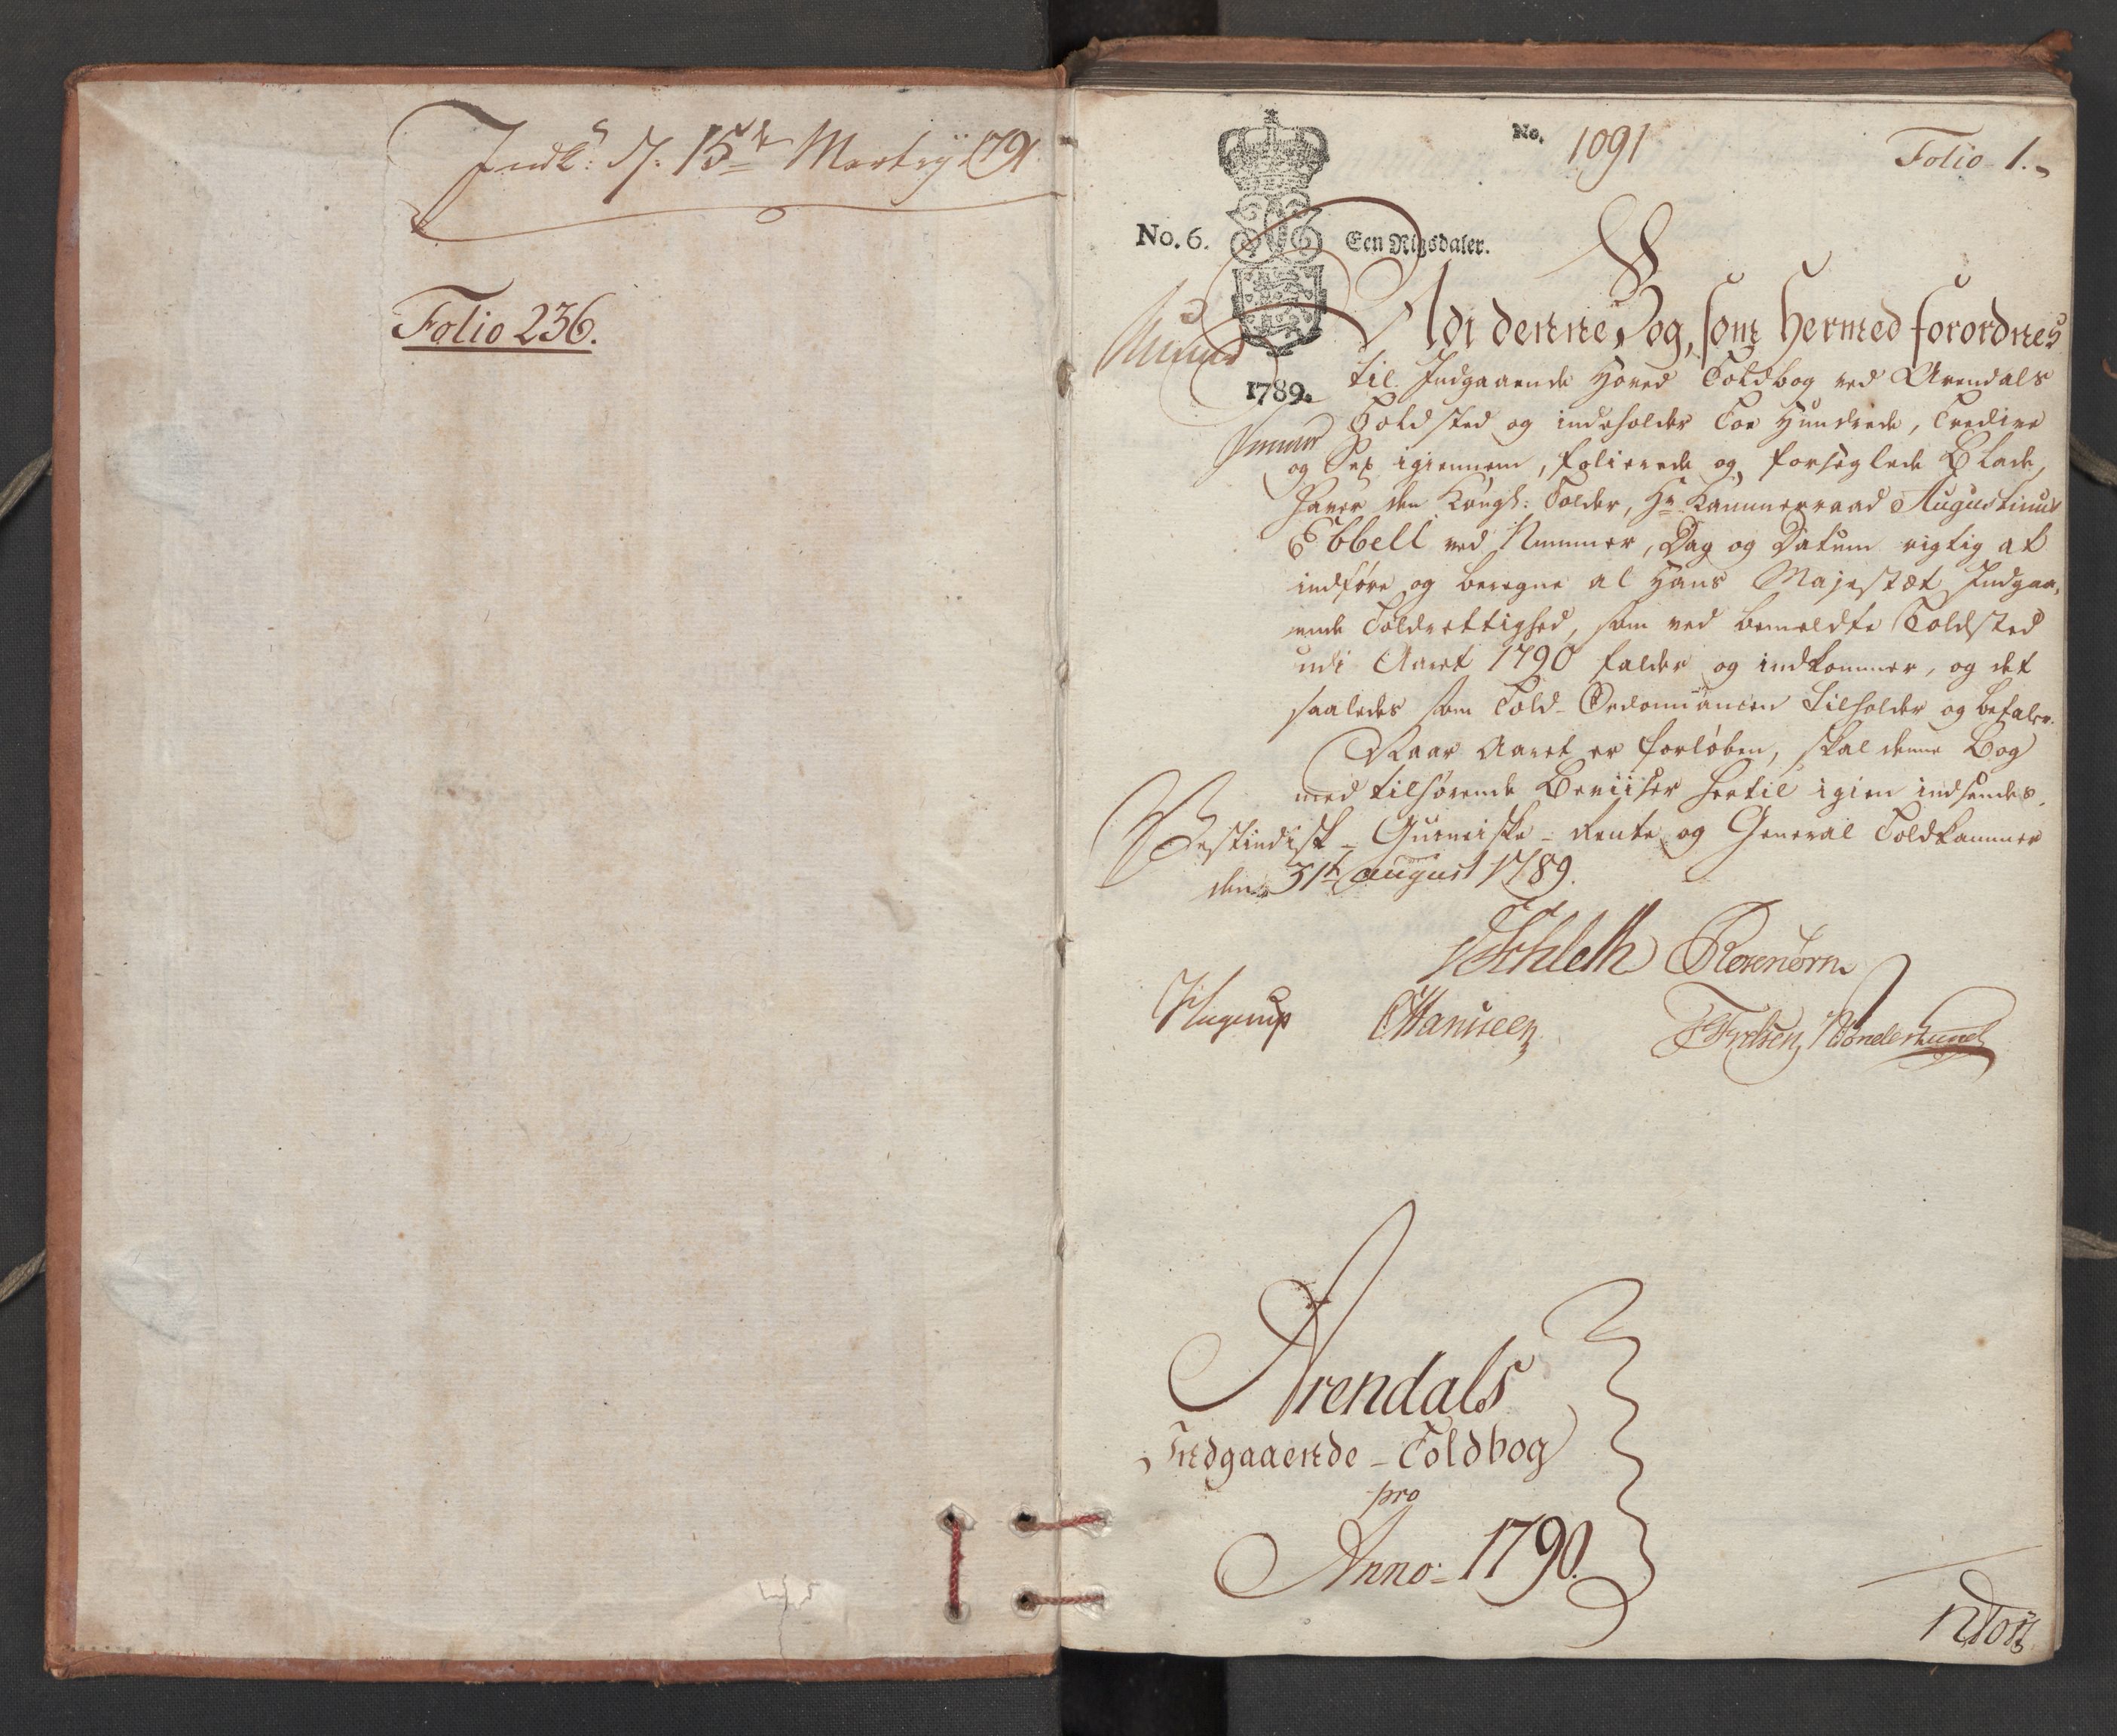 Indk: d. 15de Martij 1791
Folio 236.
No. 1091
Folio 1.
No. 6.
Een Rigsdaler.
1789.
Udi denne Bog, som hermed forordnes
til Indgaaende Hoved Toldbog ved Arendals
Toldsted og indeholder Toe Hundrede, Tredive
og Sex igiennem, folierede og forseglede Blade,
haver den Kongl: Tolder, Hr. Kammerraad Augustinus
Ebbell ved Nummer, Dag og Datum rigtig at
indføre og beregne al Hans Majestæt Indgaa-
ende Toldrettighed, som ved bemeldte Toldsted
udi Aaret 1790 falder og indkommer, og det
saaledes som Told-Ordonnancen tilholder og befaler.
Naar Aaret er forløben, skal denne Bog
med tilhørende Beviiser hertil igien indsendes.
Vestindisk-Guineiske-Rente og General Toldkammer
den 31te august 1789.
Rosenørn
Hansen
Arendals
Indgaaende-Toldbog
pro
Anno 1790.